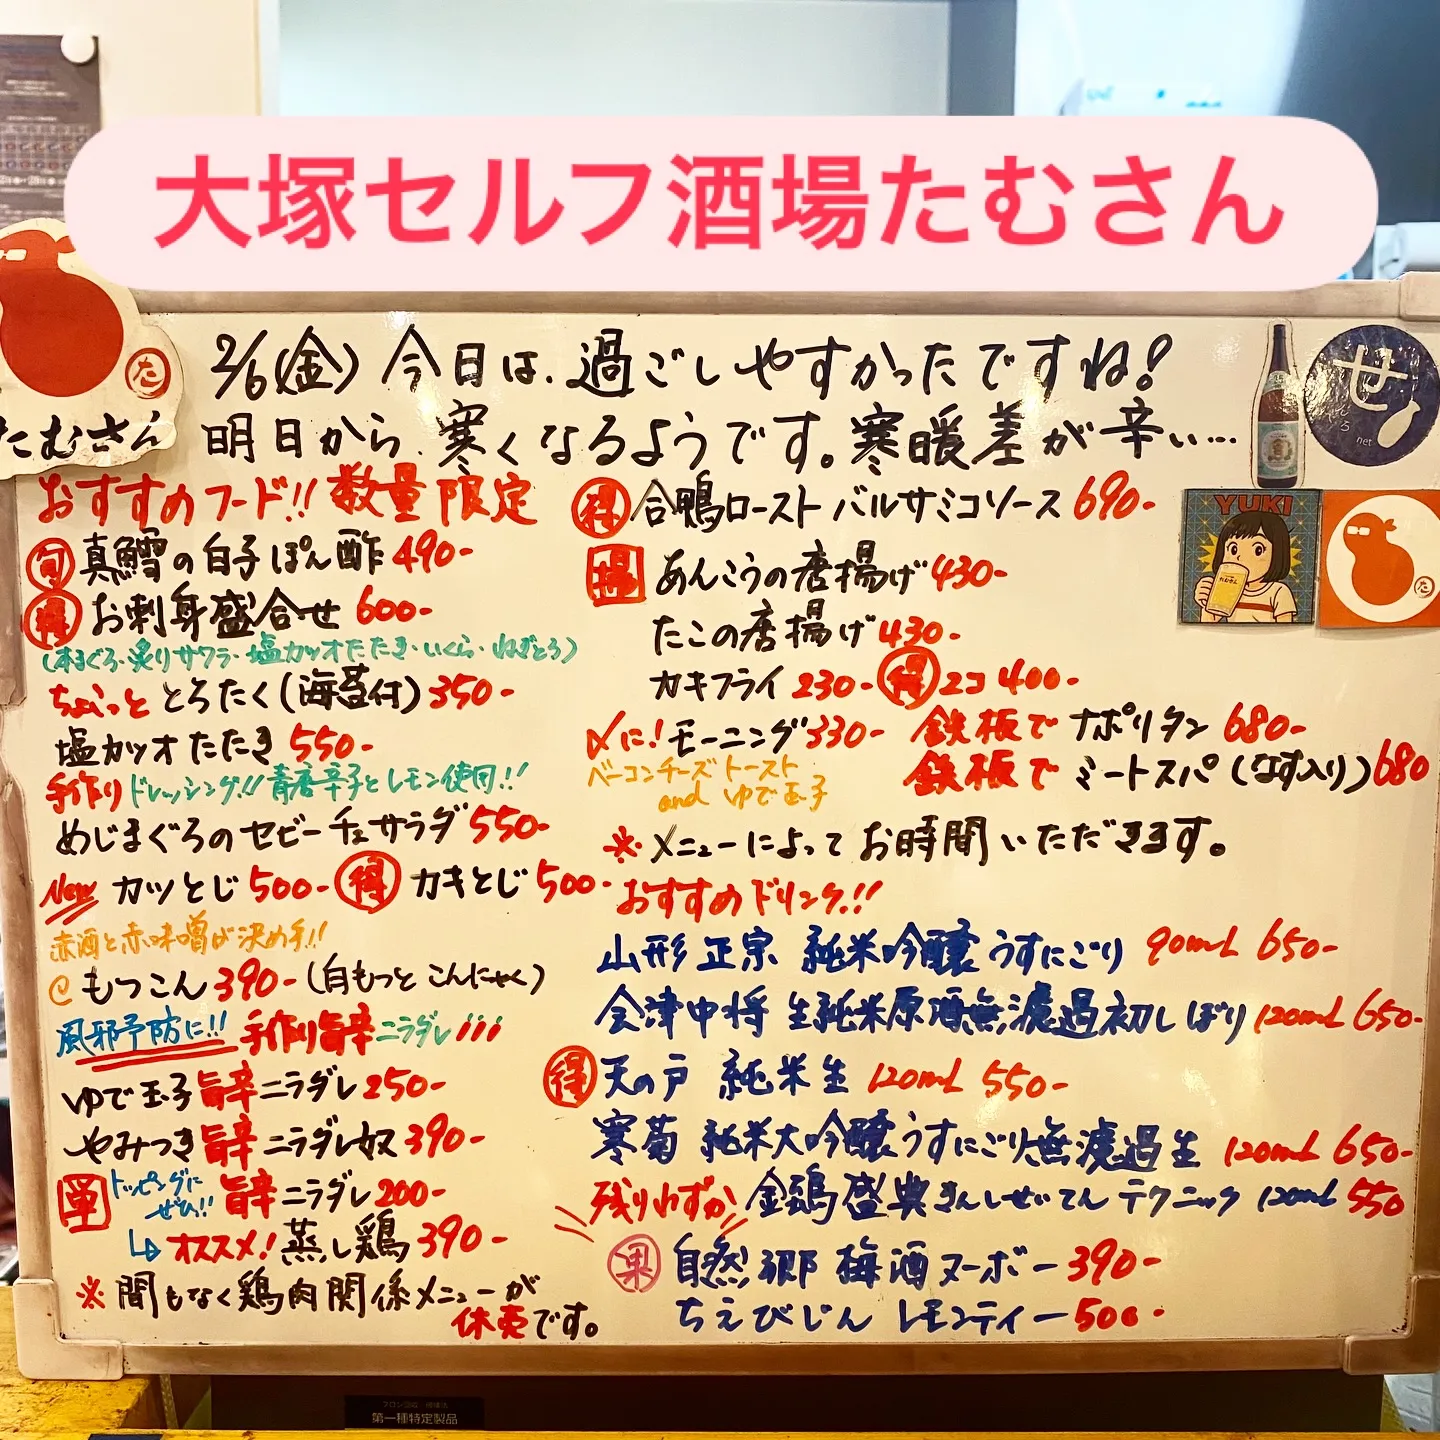 大塚セルフ酒場たむさん
た
たむさん
2/6(金) 今日は、過ごしやすかったですね!
明日から、寒くなるようです。寒暖差が辛い…
せ
net
YUKI
た
おすすめフード!! 数量限定
旬 真鱈の白子ぽん酢 490-
得 お刺身盛合せ 600-
(本まぐろ・炙りサワラ・塩カツオたたき・いくら・ねぎとろ)
ちょこっと とろたく(海苔付) 350-
塩カツオたたき 550-
手作りドレッシング!! 青唐辛子とレモン使用!!
めじまぐろのセビーチェサラダ 550-
New カツとじ 500- 得 カキとじ 500-
赤酒と赤味噌が決め手!!
@もつこん 390-(白もつと こんにゃく)
風邪予防に!! 手作り旨辛ニラダレ!!!
ゆで玉子旨辛ニラダレ 250-
やみつき旨辛ニラダレ奴 390-
単 トッピングにぜひ!! 旨辛ニラダレ 200-
オススメ! 蒸し鶏 390-
※間もなく鶏肉関係メニューが
休売です。
得 合鴨ロースト バルサミコソース 690-
揚 あんこうの唐揚げ 430-
たこの唐揚げ 430-
カキフライ 230- 得 2コ 400-
〆に! モーニング 330-
ベーコンチーズ トースト
and ゆで玉子
鉄板で ナポリタン 680-
鉄板で ミートスパ(なす入り) 680
※メニューによってお時間いただきます。
おすすめドリンク!!
山形正宗 純米吟醸うすにごり 90mL 650-
会津中将 生純米原酒無濾過初しぼり 120mL 650-
得 天の戸 純米生 120mL 550-
寒菊 純米大吟醸うすにごり無濾過生 120mL 650-
残りわずか 金鶏盛典きんしぜてん テクニック 120mL 550
果 自然郷 梅酒ヌーボー 390-
ちえびじん レモンティー 500-
第一種特定製品